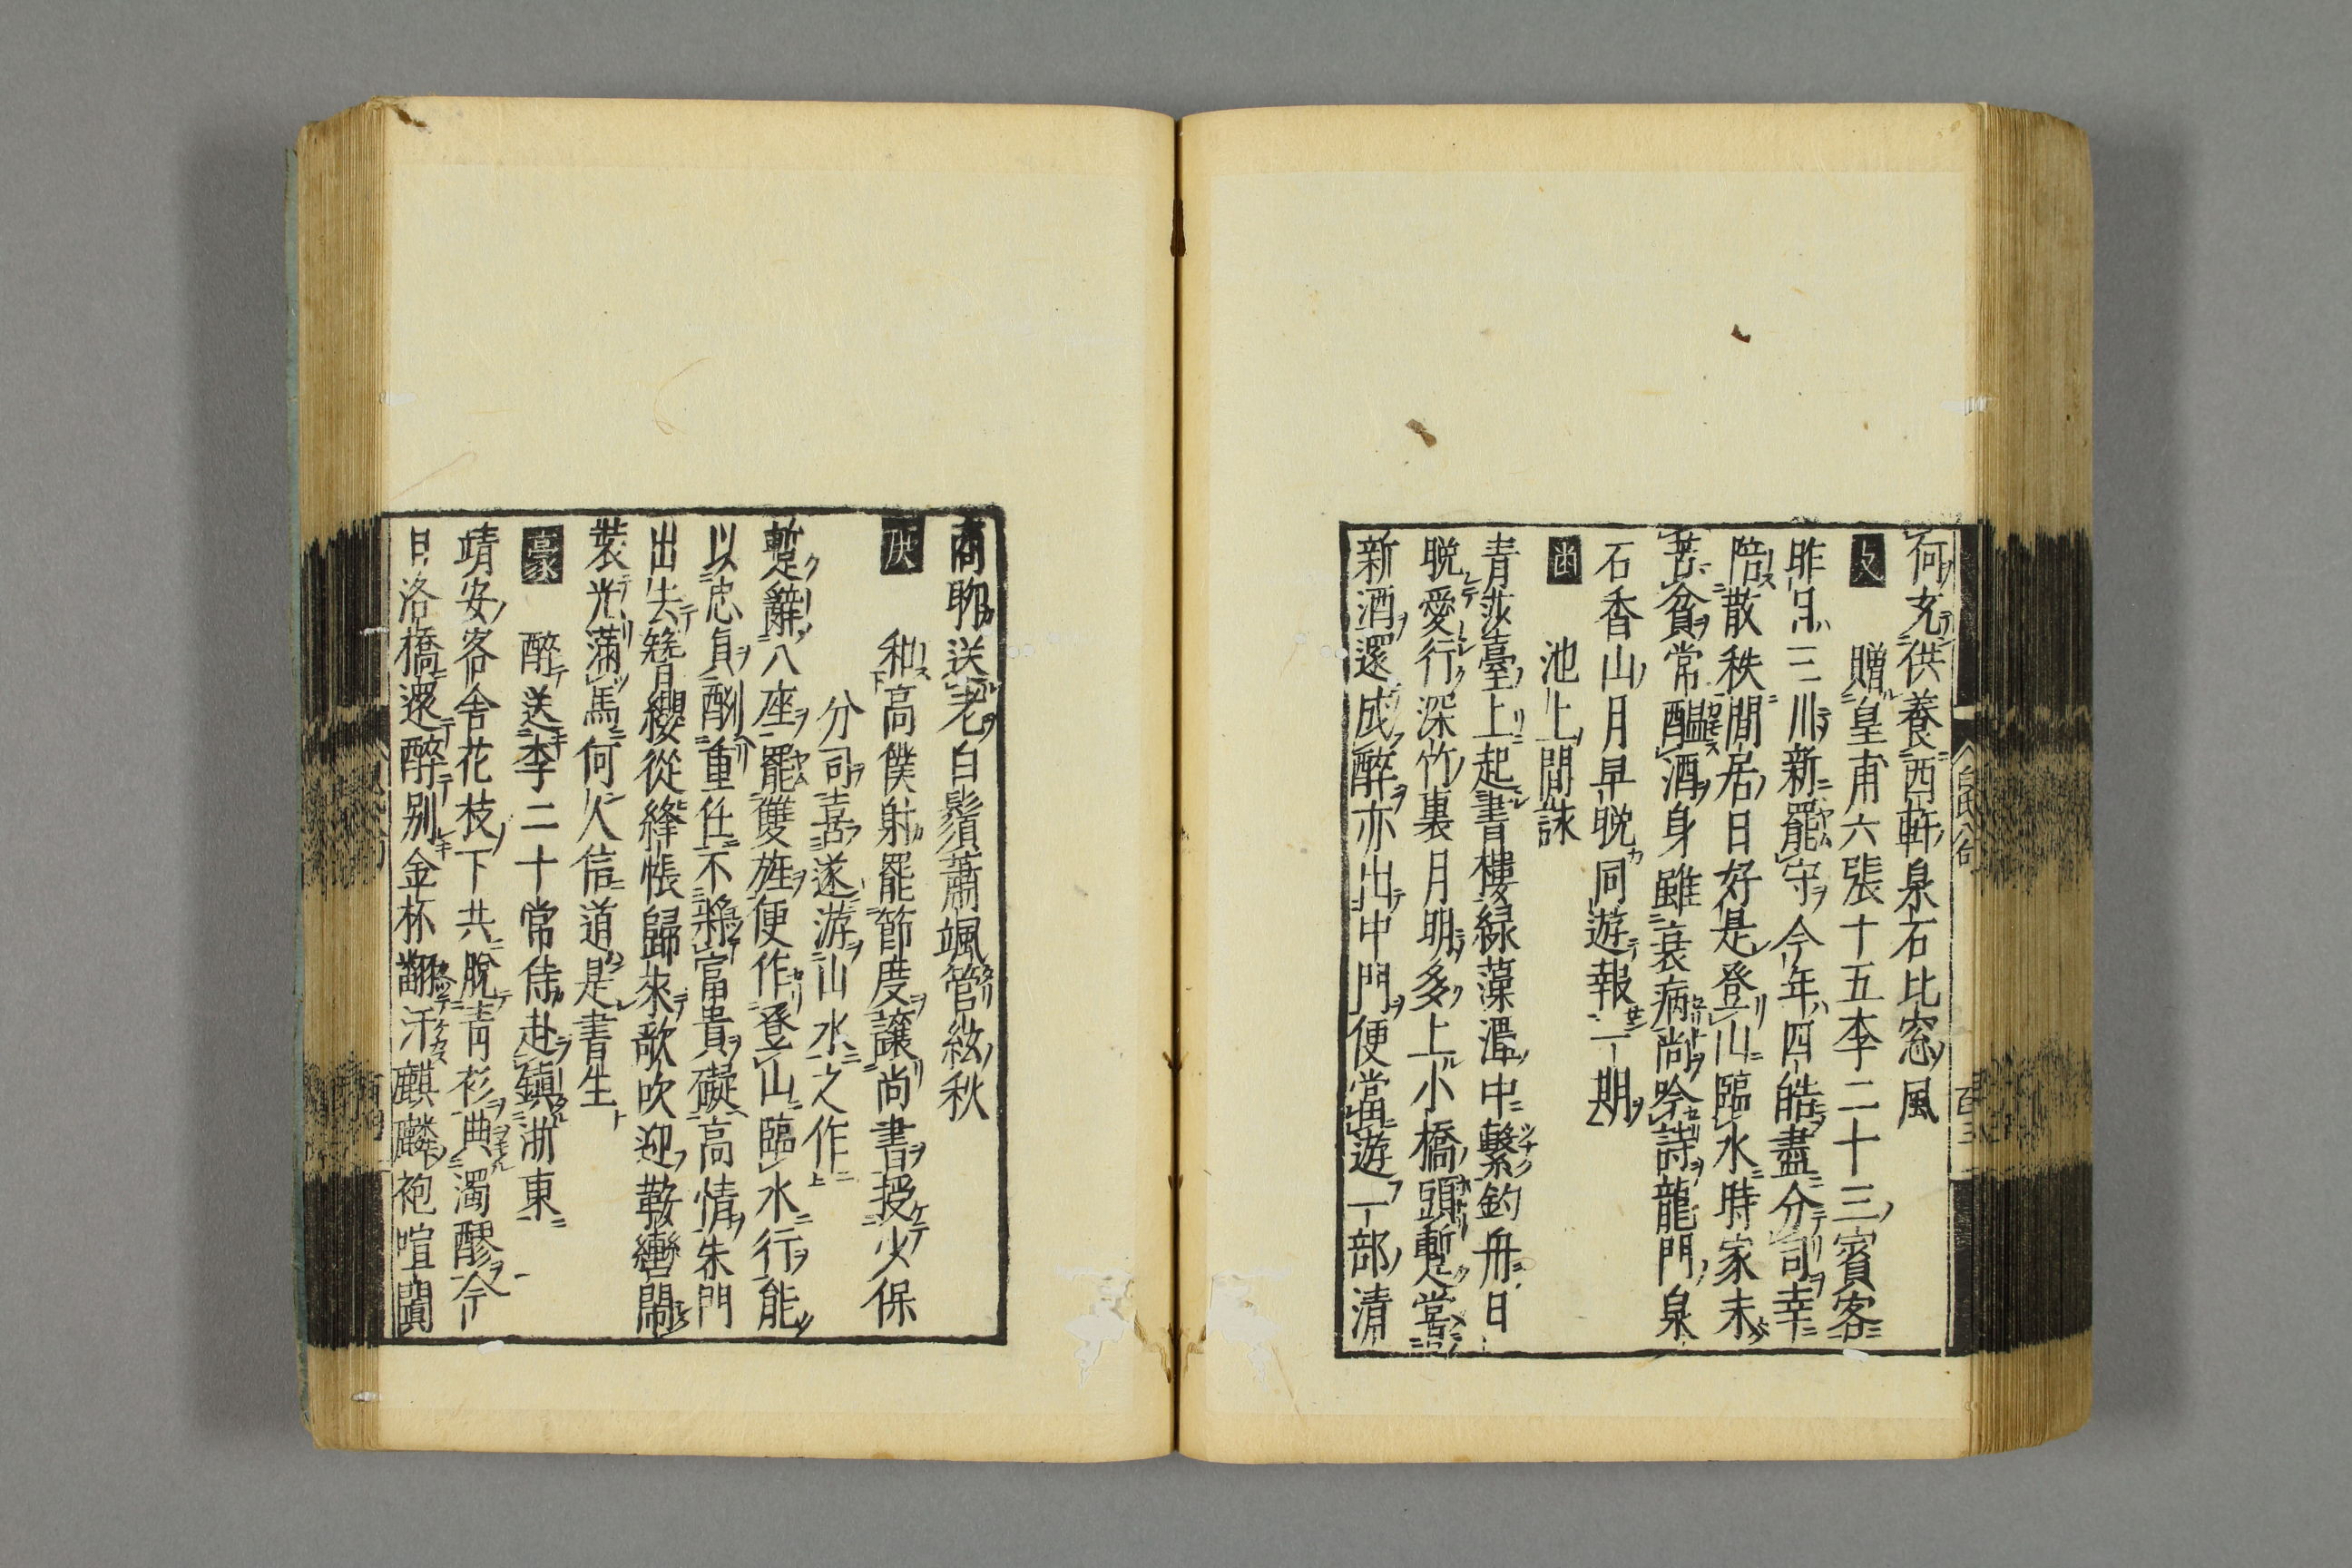 何充供養西軒泉石比窓風
支
贈皇甫六張十五李二十三賓客
昨日三川新罷守今年四皓盡分司幸
陪散秩間居日好是登山臨水時家未
苦貧常醞酒身雖衰病尚吟詩龍門泉
石香山月早晩同遊報一期
尚
池上間詠
青莎臺上起書樓緑藻潭中繫釣舟日
晩愛行深竹裏月明多上小橋頭暫嘗
新酒還成醉亦出中門便當遊一部清
商聊送老白鬚蕭颯管絃秋
庚
和高僕射罷節度讓尚書授少保
分司喜遂游山水之作
暫辭八座罷雙旌便作登山臨水行能
以忠貞酬重任不將富貴礙高情朱門
出去簪纓從絳帳歸來歌吹迎鞍轡閙
裝光滿馬何人信道是書生
豪
醉送李二十常侍赴鎮浙東
靖安客舎花枝下共脫青衫典濁醪今
日洛橋還醉别金杯翻汗麒麟袍喧闐